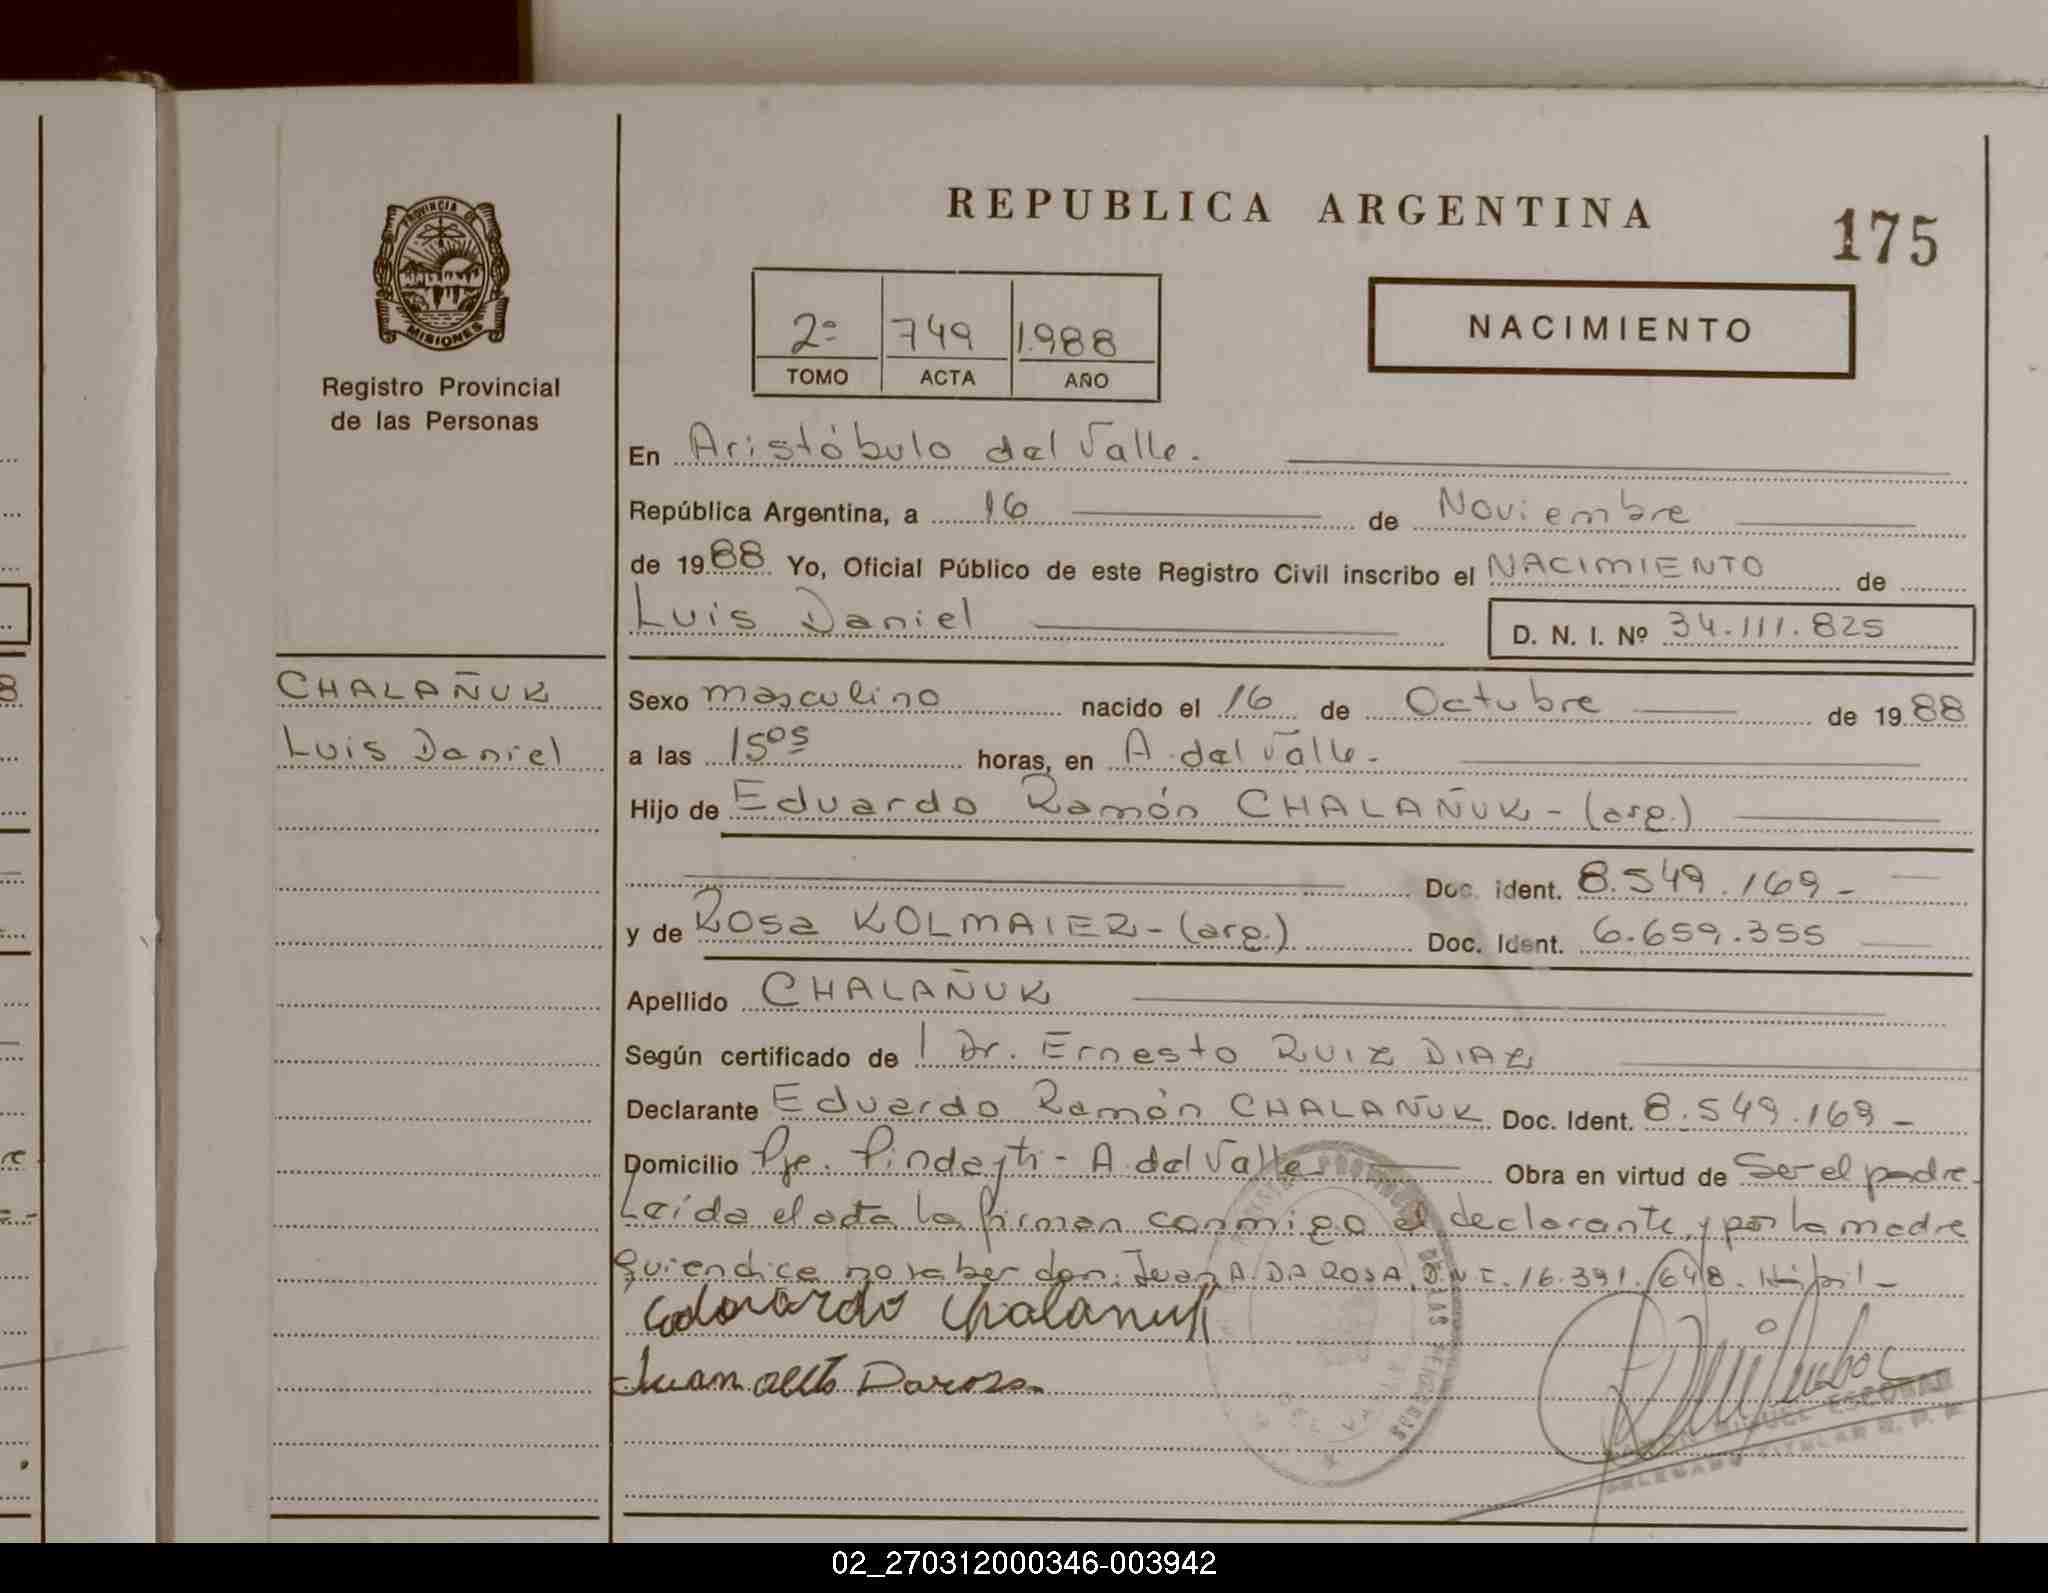 REPUBLICA ARGENTINA
175
PROVINCIA DE
MISIONES
Registro Provincial
de las Personas
2º 749 1.988
TOMO ACTA AÑO
NACIMIENTO
En Aristóbulo del Valle.
República Argentina, a 16 de Noviembre
de 1988 Yo, Oficial Público de este Registro Civil inscribo el NACIMIENTO de
Luis Daniel
D. N. I. Nº 34.111.825
CHALAÑUK
Luis Daniel
Sexo masculino nacido el 16 de Octubre de 1988
a las 15os horas, en A. del Valle.
Hijo de Eduardo Ramón CHALAÑUK - (arg.)
Doc. ident. 8.549.169 -
y de Rosa KOLMAIER - (arg.) Doc. Ident. 6.659.355
Apellido CHALAÑUK
Según certificado de l Dr. Ernesto RUIZ DIAZ
Declarante Eduardo Ramón CHALAÑUK Doc. Ident. 8.549.169 -
Domicilio Pje. Pindayti - A. del Valle Obra en virtud de Ser el padre -
Leída el acta la firman conmigo el declarante, y por la madre
quien dice no saber don: Juan A. DA ROSA, D.N.I. 16.391.648. Hábil -
Chalanuk
Juan Daroza
MIGUEL ESCOBAR
DELEGADO TITULAR R. P. P.
8
02_270312000346-003942